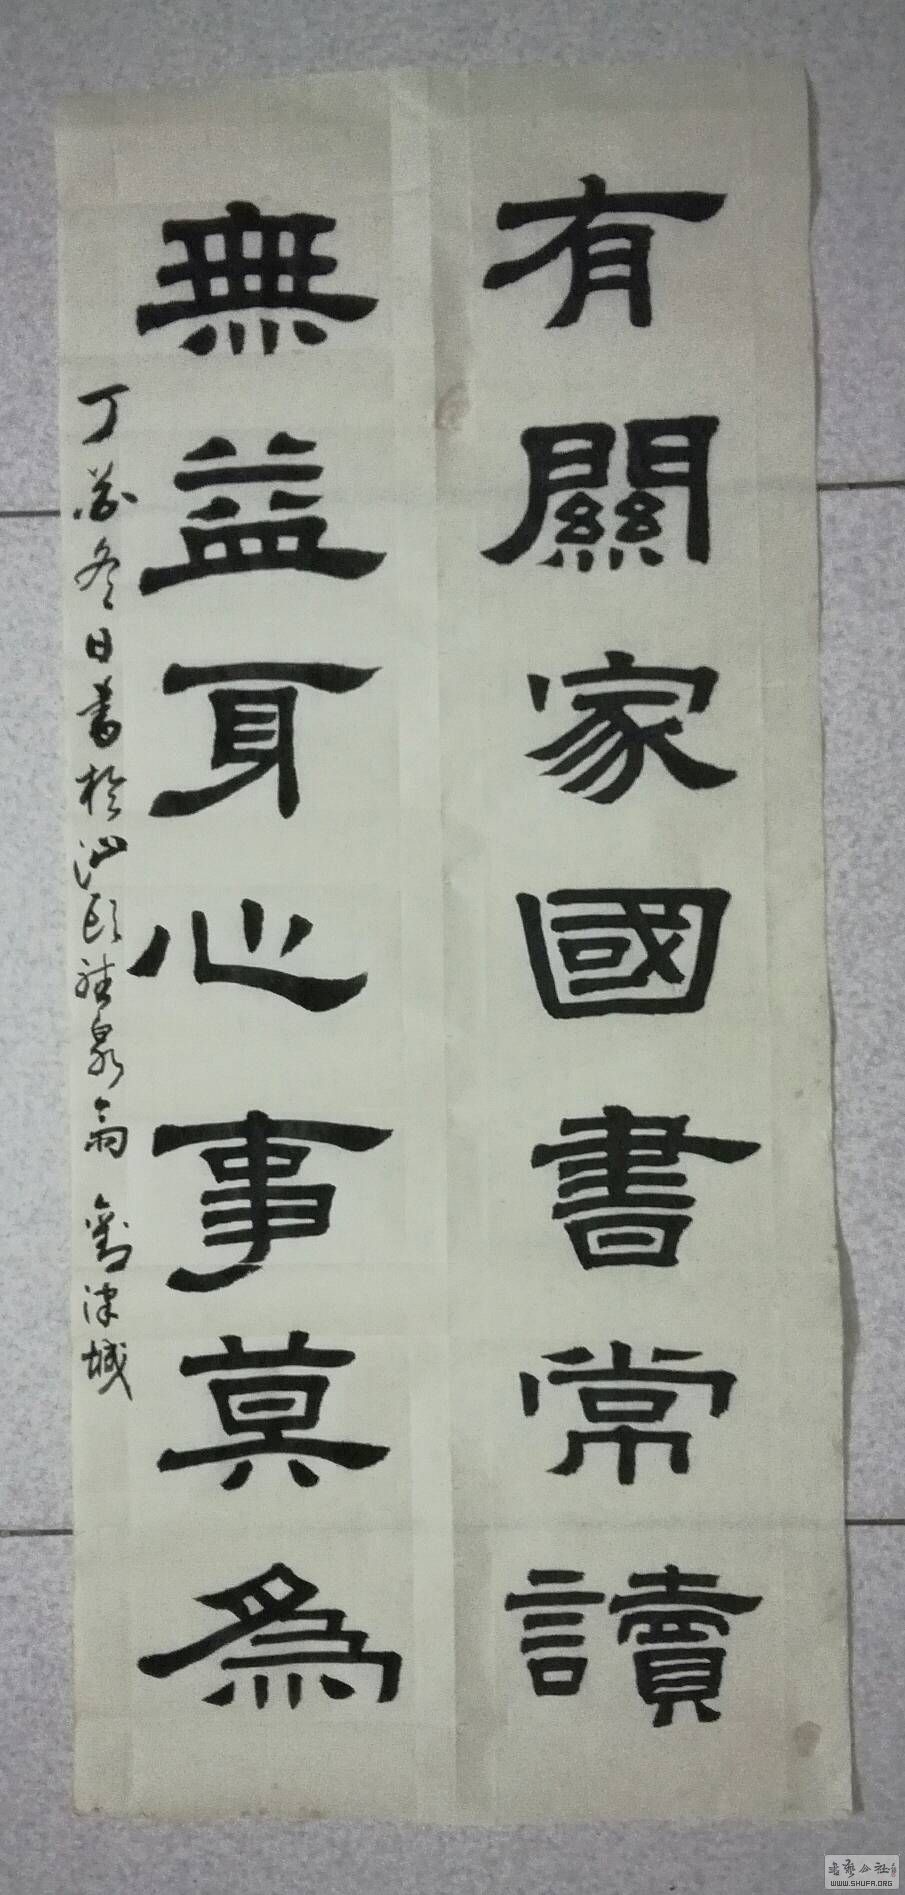 有關家國書常讀
無益身心事莫為
丁酉冬日書於泗
泉翁
津城
書藝公社
WWW.SHUFA.ORG